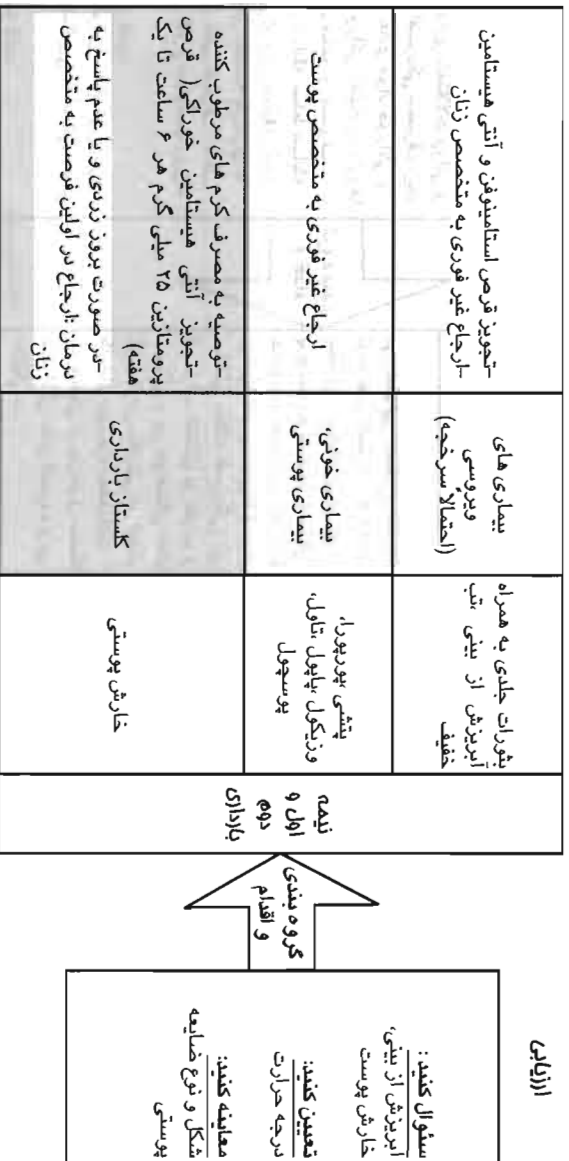 ارزیابی
سئوال کنید :
آبریزش از بینی،
خارش پوست
تعیین کنید:
درجه حرارت
معاینه کنید:
شکل و نوع ضایعه
پوستی
گروه بندی
و اقدام
نیمه
اول و
دوم
بارداری
بثورات جلدی به همراه
آبریزش از بینی ،تب
خفیف
بیماری های
ویروسی
(احتمالاً سرخجه)
-تجویز قرص استامینوفن و آنتی هیستامین
-ارجاع غیر فوری به متخصص زنان
پتشی ،پورپورا،
وزیکول ،پاپول ،تاول،
پوسچول
بیماری خونی،
بیماری پوستی
ارجاع غیر فوری به متخصص پوست
خارش پوستی
کلستاز بارداری
-توصیه به مصرف کرم های مرطوب کننده
-تجویز آنتی هیستامین خوراکی( قرص
پرومتازین ۲۵ میلی گرم هر ۶ ساعت تا یک
هفته)
-در صورت بروز زردی و یا عدم پاسخ به
درمان :ارجاع در اولین فرصت به متخصص
زنان